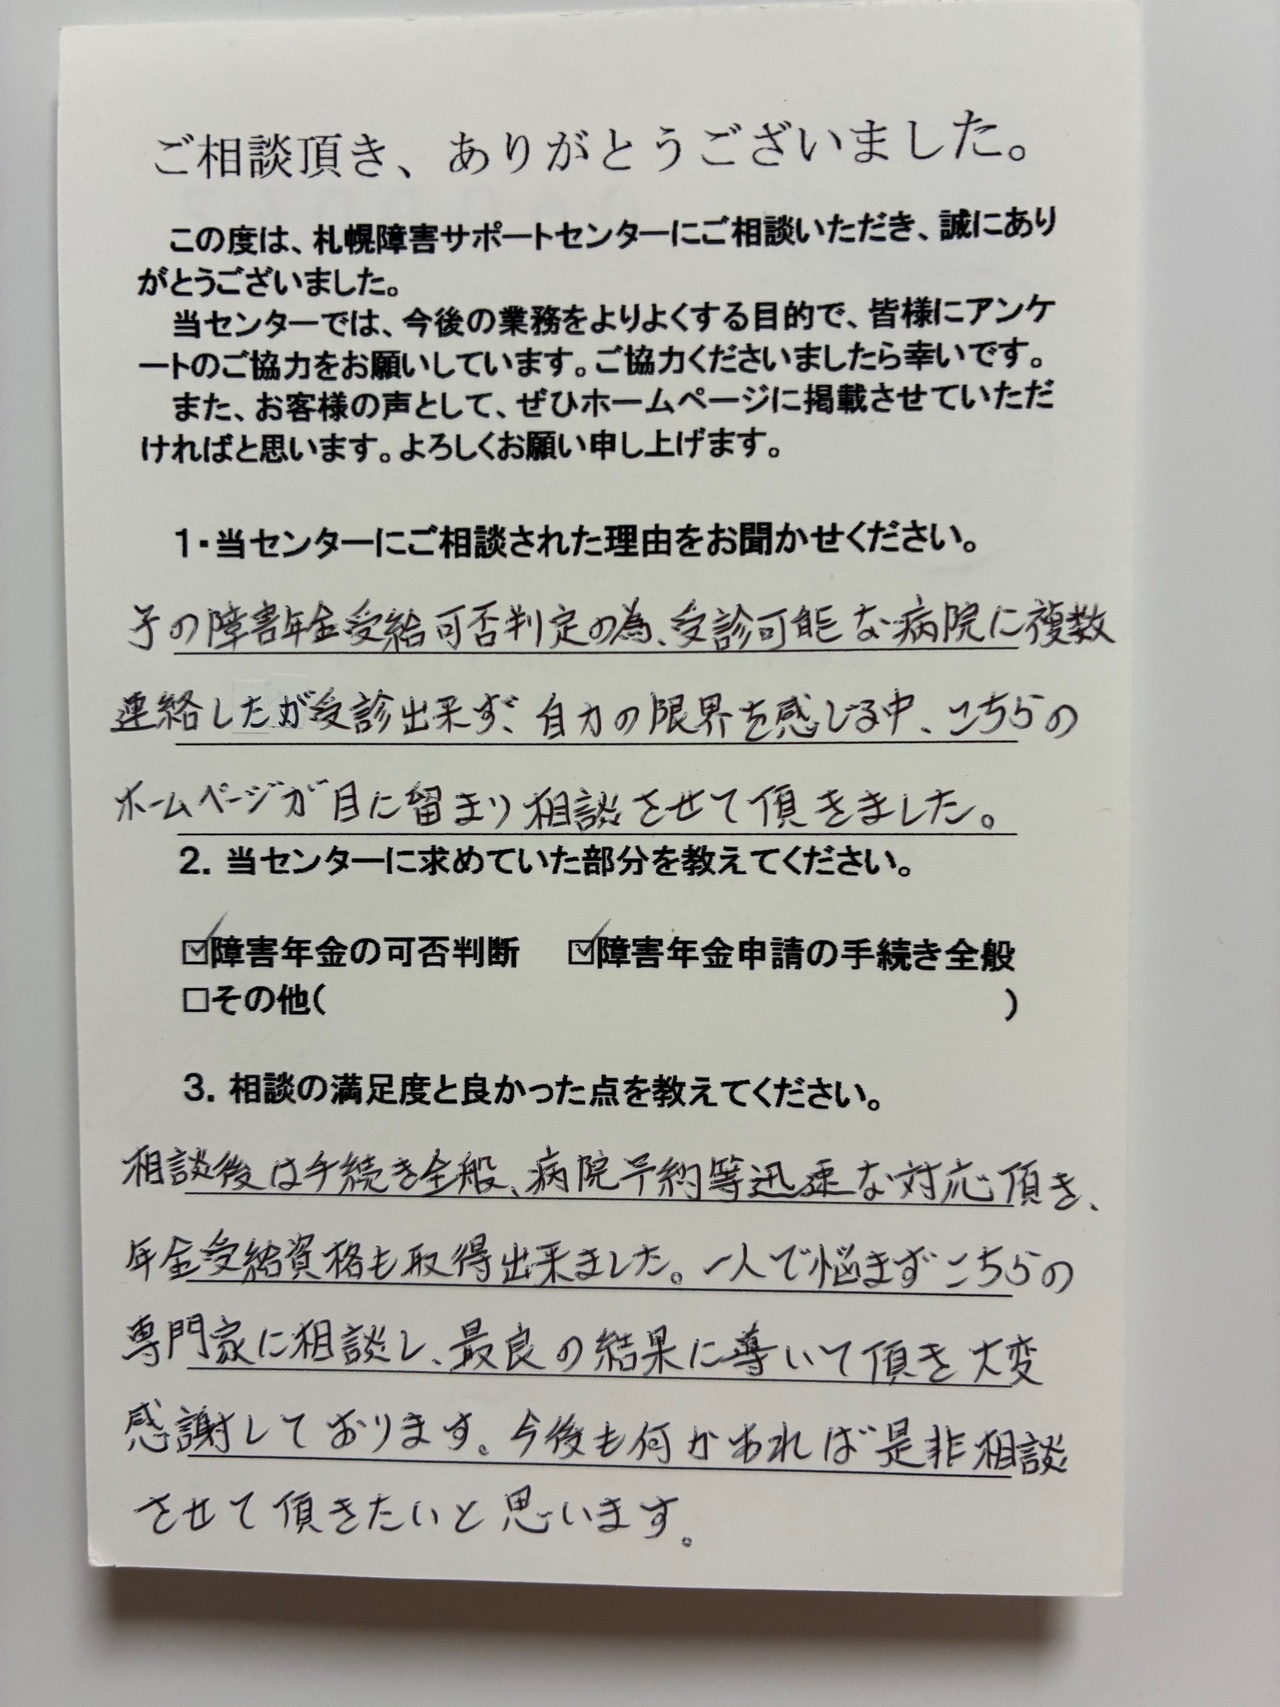 ご相談頂き、ありがとうございました。
この度は、札幌障害サポートセンターにご相談いただき、誠にあり
がとうございました。
当センターでは、今後の業務をよりよくする目的で、皆様にアンケ
ートのご協力をお願いしています。ご協力くださいましたら幸いです。
また、お客様の声として、ぜひホームページに掲載させていただ
ければと思います。よろしくお願い申し上げます。
1・当センターにご相談された理由をお聞かせください。
子の障害年金受給可否判定の為、受診可能な病院に複数
連絡したが受診出来ず、自力の限界を感じる中、こちらの
ホームページが目に留まり相談させて頂きました。
2. 当センターに求めていた部分を教えてください。
☑障害年金の可否判断 ☑障害年金申請の手続き全般
□その他( )
3. 相談の満足度と良かった点を教えてください。
相談後は手続き全般、病院予約等迅速な対応頂き、
年金受給資格も取得出来ました。一人で悩まずこちらの
専門家に相談し、最良の結果に導いて頂き大変
感謝しております。今後も何かあれば是非相談
させて頂きたいと思います。